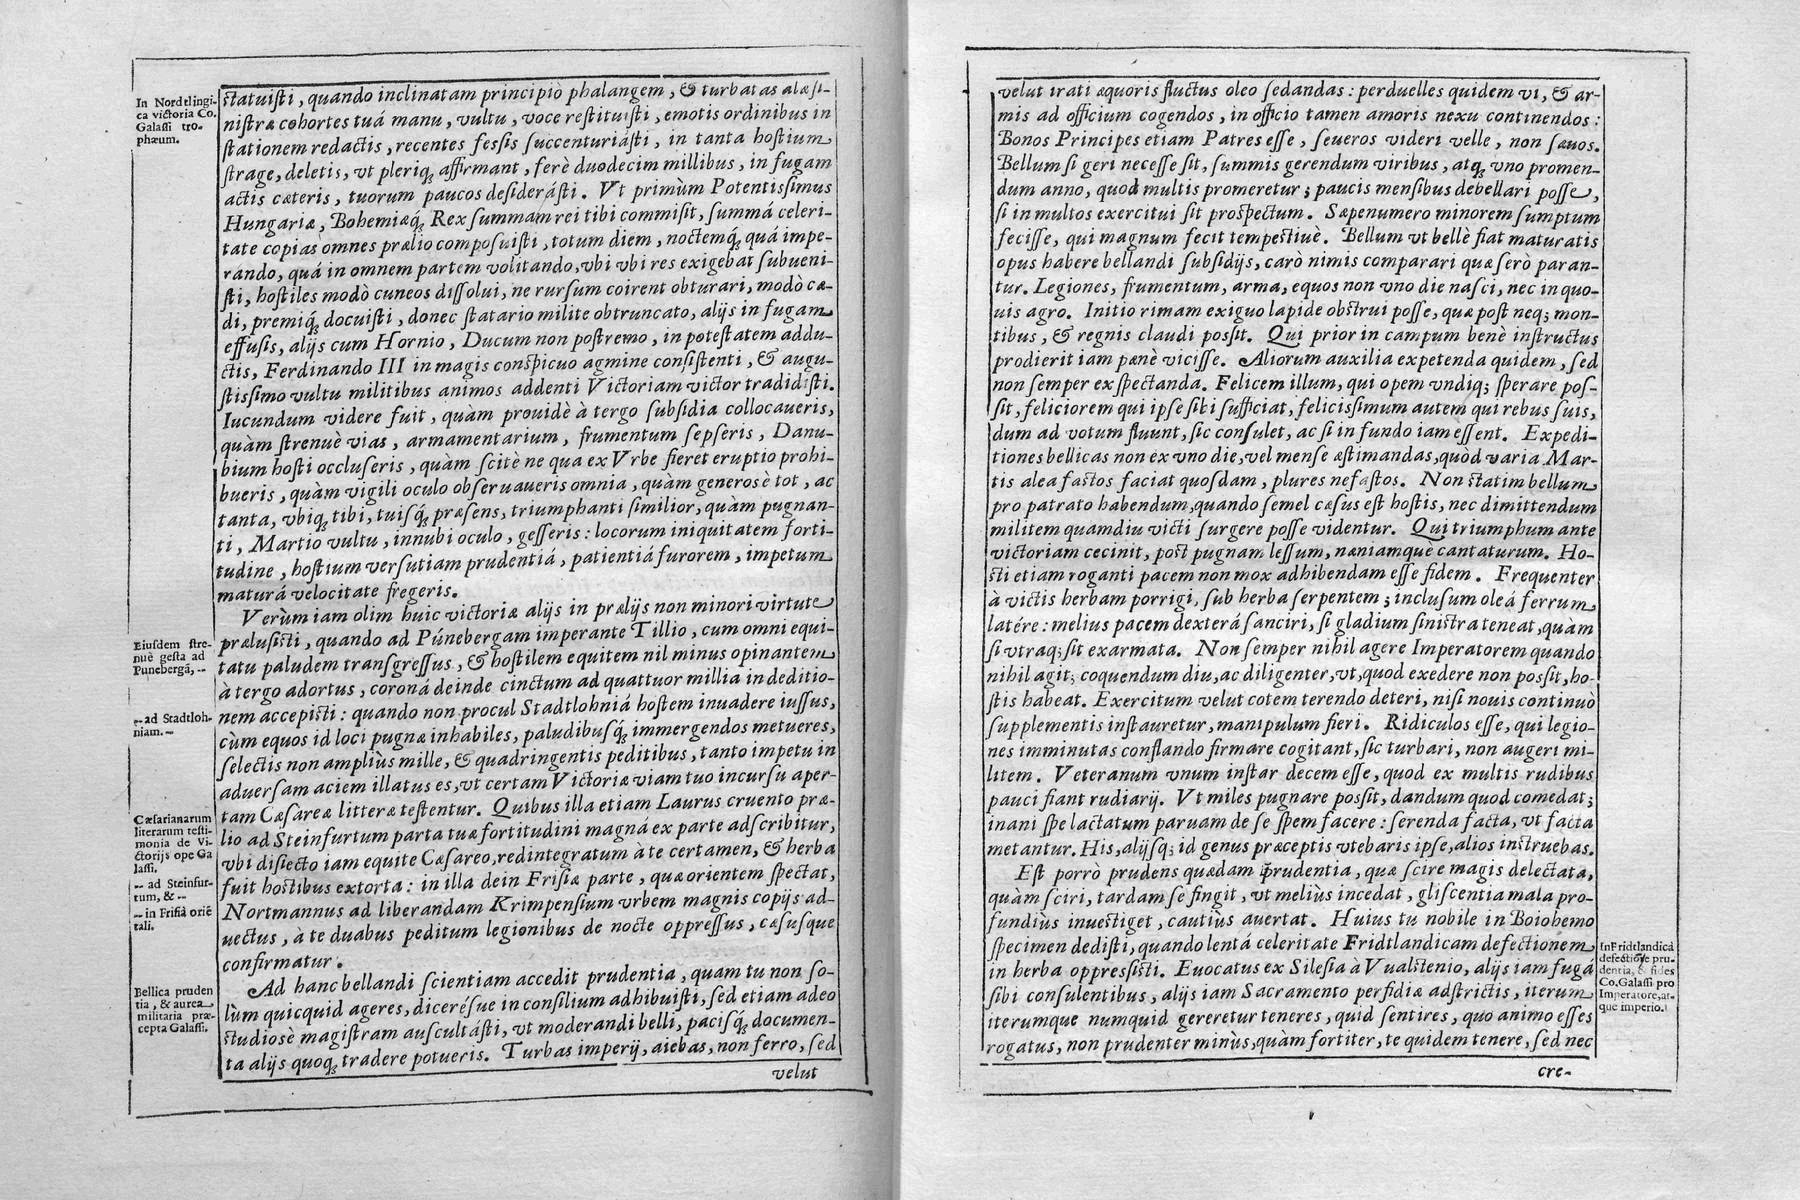 In Nordtlingi-
ca victoria Co.
Galassi tro-
phæum.
statuisti, quando inclinatam principiò phalangem, & turbatas alæ si-
nistræ cohortes tuá manu, vultu, voce restituisti, emotis ordinibus in
stationem redactis, recentes fessis succenturiásti, in tanta hostium
strage, deletis, vt pleriq; affirmant, ferè duodecim millibus, in fugam
actis cæteris, tuorum paucos desiderásti. Vt primùm Potentissimus
Hungariæ, Bohemiæq́; Rex summam rei tibi commisit, summá celeri-
tate copias omnes prælio composuisti, totum diem, noctemq́; quá impe-
rando, quá in omnem partem volitando, vbi vbi res exigebat subueni-
sti, hostiles modò cuneos dissolui, ne rursum coirent obturari, modò cæ-
di, premiq́; docuisti, donec statario milite obtruncato, alijs in fugam
effusis, alijs cum Hornio, Ducum non postremo, in potestatem addu-
ctis, Ferdinando III in magis conspicuo agmine consistenti, & augu-
stissimo vultu militibus animos addenti Victoriam victor tradidisti.
Iucundum videre fuit, quàm prouidè à tergo subsidia collocaueris,
quàm strenuè vias, armamentarium, frumentum sepseris, Danu-
bium hosti occluseris, quàm scitè ne qua ex Vrbe fieret eruptio prohi-
bueris, quàm vigili oculo obseruaueris omnia, quàm generosè tot, ac
tanta, vbiq; tibi, tuisq́; præsens, triumphanti similior, quàm pugnan-
ti, Martio vultu, innubi oculo, gesseris: locorum iniquitatem forti-
tudine, hostium versutiam prudentiá, patientiá furorem, impetum
maturá velocitate fregeris.
Verùm iam olim huic victoriæ alijs in prælijs non minori virtute
Eiusdem stre-
nuè gesta ad
Punebergã, --
prælusisti, quando ad Púnebergam imperante Tillio, cum omni equi-
tatu paludem transgressus, & hostilem equitem nil minus opinantem
à tergo adortus, coroná deinde cinctum ad quattuor millia in deditio-
-- ad Stadtloh-
niam. --
nem accepisti: quando non procul Stadtlohniá hostem inuadere iussus,
cùm equos id loci pugnæ inhabiles, paludibusq́; immergendos metueres,
selectis non ampliùs mille, & quadringentis peditibus, tanto impetu in
aduersam aciem illatus es, vt certam Victoriæ viam tuo incursu aper-
Cæsarianarum
literarum testi-
monia de Vi-
ctorijs ope Ga
lassi.
tam Cæsareæ litteræ testentur. Quibus illa etiam Laurus cruento præ-
lio ad Steinfurtum parta tuæ fortitudini magná ex parte adscribitur,
vbi disiecto iam equite Cæsareo, redintegratum à te certamen, & herba
-- ad Steinfur-
tum, & --
-- in Frisiâ oriẽ
tali.
fuit hostibus extorta: in illa dein Frisiæ parte, quæ orientem spectat,
Nortmannus ad liberandam Krimpensium vrbem magnis copijs ad-
uectus, à te duabus peditum legionibus de nocte oppressus, cæsusque
confirmatur.
Bellica pruden
tia, & aurea
militaria præ-
cepta Galassi.
Ad hanc bellandi scientiam accedit prudentia, quam tu non so-
lùm quicquid ageres, dicerésue in consilium adhibuisti, sed etiam adeo
studiosè magistram auscultásti, vt moderandi belli, pacisq́; documen-
ta alijs quoq; tradere potueris. Turbas imperij, aiebas, non ferro, sed
velut
velut irati æquoris fluctus oleo sedandas: perduelles quidem vi, & ar-
mis ad officium cogendos, in officio tamen amoris nexu continendos:
Bonos Principes etiam Patres esse, seueros videri velle, non sæuos.
Bellum si geri necesse sit, summis gerendum viribus, atq; vno promen-
dum anno, quod multis promeretur; paucis mensibus debellari posse,
si in multos exercitui sit prospectum. Sæpenumero minorem sumptum
fecisse, qui magnum fecit tempestiuè. Bellum vt bellè fiat maturatis
opus habere bellandi subsidijs, carò nimis comparari quæ serò paran-
tur. Legiones, frumentum, arma, equos non vno die nasci, nec in quo-
uis agro. Initio rimam exiguo lapide obstrui posse, quæ post neq; mon-
tibus, & regnis claudi possit. Qui prior in campum benè instructus
prodierit iam pænè vicisse. Aliorum auxilia expetenda quidem, sed
non semper exspectanda. Felicem illum, qui opem vndiq; sperare pos-
sit, feliciorem qui ipse sibi sufficiat, felicissimum autem qui rebus suis,
dum ad votum fluunt, sic consulet, ac si in fundo iam essent. Expedi-
tiones bellicas non ex vno die, vel mense æstimandas, quòd varia Mar-
tis alea fastos faciat quosdam, plures nefastos. Non statim bellum
pro patrato habendum, quando semel cæsus est hostis, nec dimittendum
militem quamdiu victi surgere posse videntur. Qui triumphum ante
victoriam cecinit, post pugnam lessum, næniamque cantaturum. Ho-
sti etiam roganti pacem non mox adhibendam esse fidem. Frequenter
à victis herbam porrigi, sub herba serpentem; inclusum oleá ferrum
latére: melius pacem dexterá sanciri, si gladium sinistra teneat, quàm
si vtraq; sit exarmata. Non semper nihil agere Imperatorem quando
nihil agit; coquendum diu, ac diligenter, vt, quod exedere non possit, ho-
stis habeat. Exercitum velut cotem terendo deteri, nisi nouis continuò
supplementis instauretur, manipulum fieri. Ridiculos esse, qui legio-
nes imminutas conflando firmare cogitant, sic turbari, non augeri mi-
litem. Veteranum vnum instar decem esse, quod ex multis rudibus
pauci fiant rudiarij. Vt miles pugnare possit, dandum quod comedat;
inani spe lactatum paruam de se spem facere: serenda facta, vt facta
metantur. His, alijsq; id genus præceptis vtebaris ipse, alios instruebas.
Est porrò prudens quædam prudentia, quæ scire magis delectata,
quàm sciri, tardam se fingit, vt meliùs incedat, gliscentia mala pro-
fundiùs inuestiget, cautiùs auertat. Huius tu nobile in Boiohemo
specimen dedisti, quando lentá celeritate Fridtlandicam defectionem
in herba oppressisti. Euocatus ex Silesia à Vualstenio, alijs iam fugá
sibi consulentibus, alijs iam Sacramento perfidiæ adstrictis, iterum
iterumque numquid gereretur teneres, quid sentires, quo animo esses
rogatus, non prudenter minùs, quàm fortiter, te quidem tenere, sed nec
In Fridtlandicâ
defectione pru-
dentia, & fides
Co. Galassi pro
Imperatore, at-
que imperio.
cre-